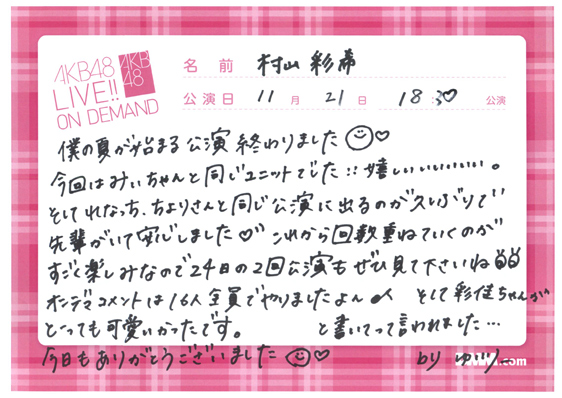 AKB48
LIVE!!
ON DEMAND
AKB
48
名前 村山彩希
公演日 11月21日 18:30 公演
僕の夏が始まる公演終わりました
今回はみぃちゃんと同じユニットでした!!嬉しいいいいいい。
そしてれなっち、ちよりさんと同じ公演に出るのが久しぶりで
先輩がいて安心しました♡ これから回数重ねていくのが
すごく楽しみなので24日の2回公演もぜひ見て下さいね
オンデマコメントは16人全員でやりましたよん そして彩佳ちゃんが
とっても可愛いかったです。 と書いてって言われました…
今日もありがとうございました♡ by ゆいりー
.com